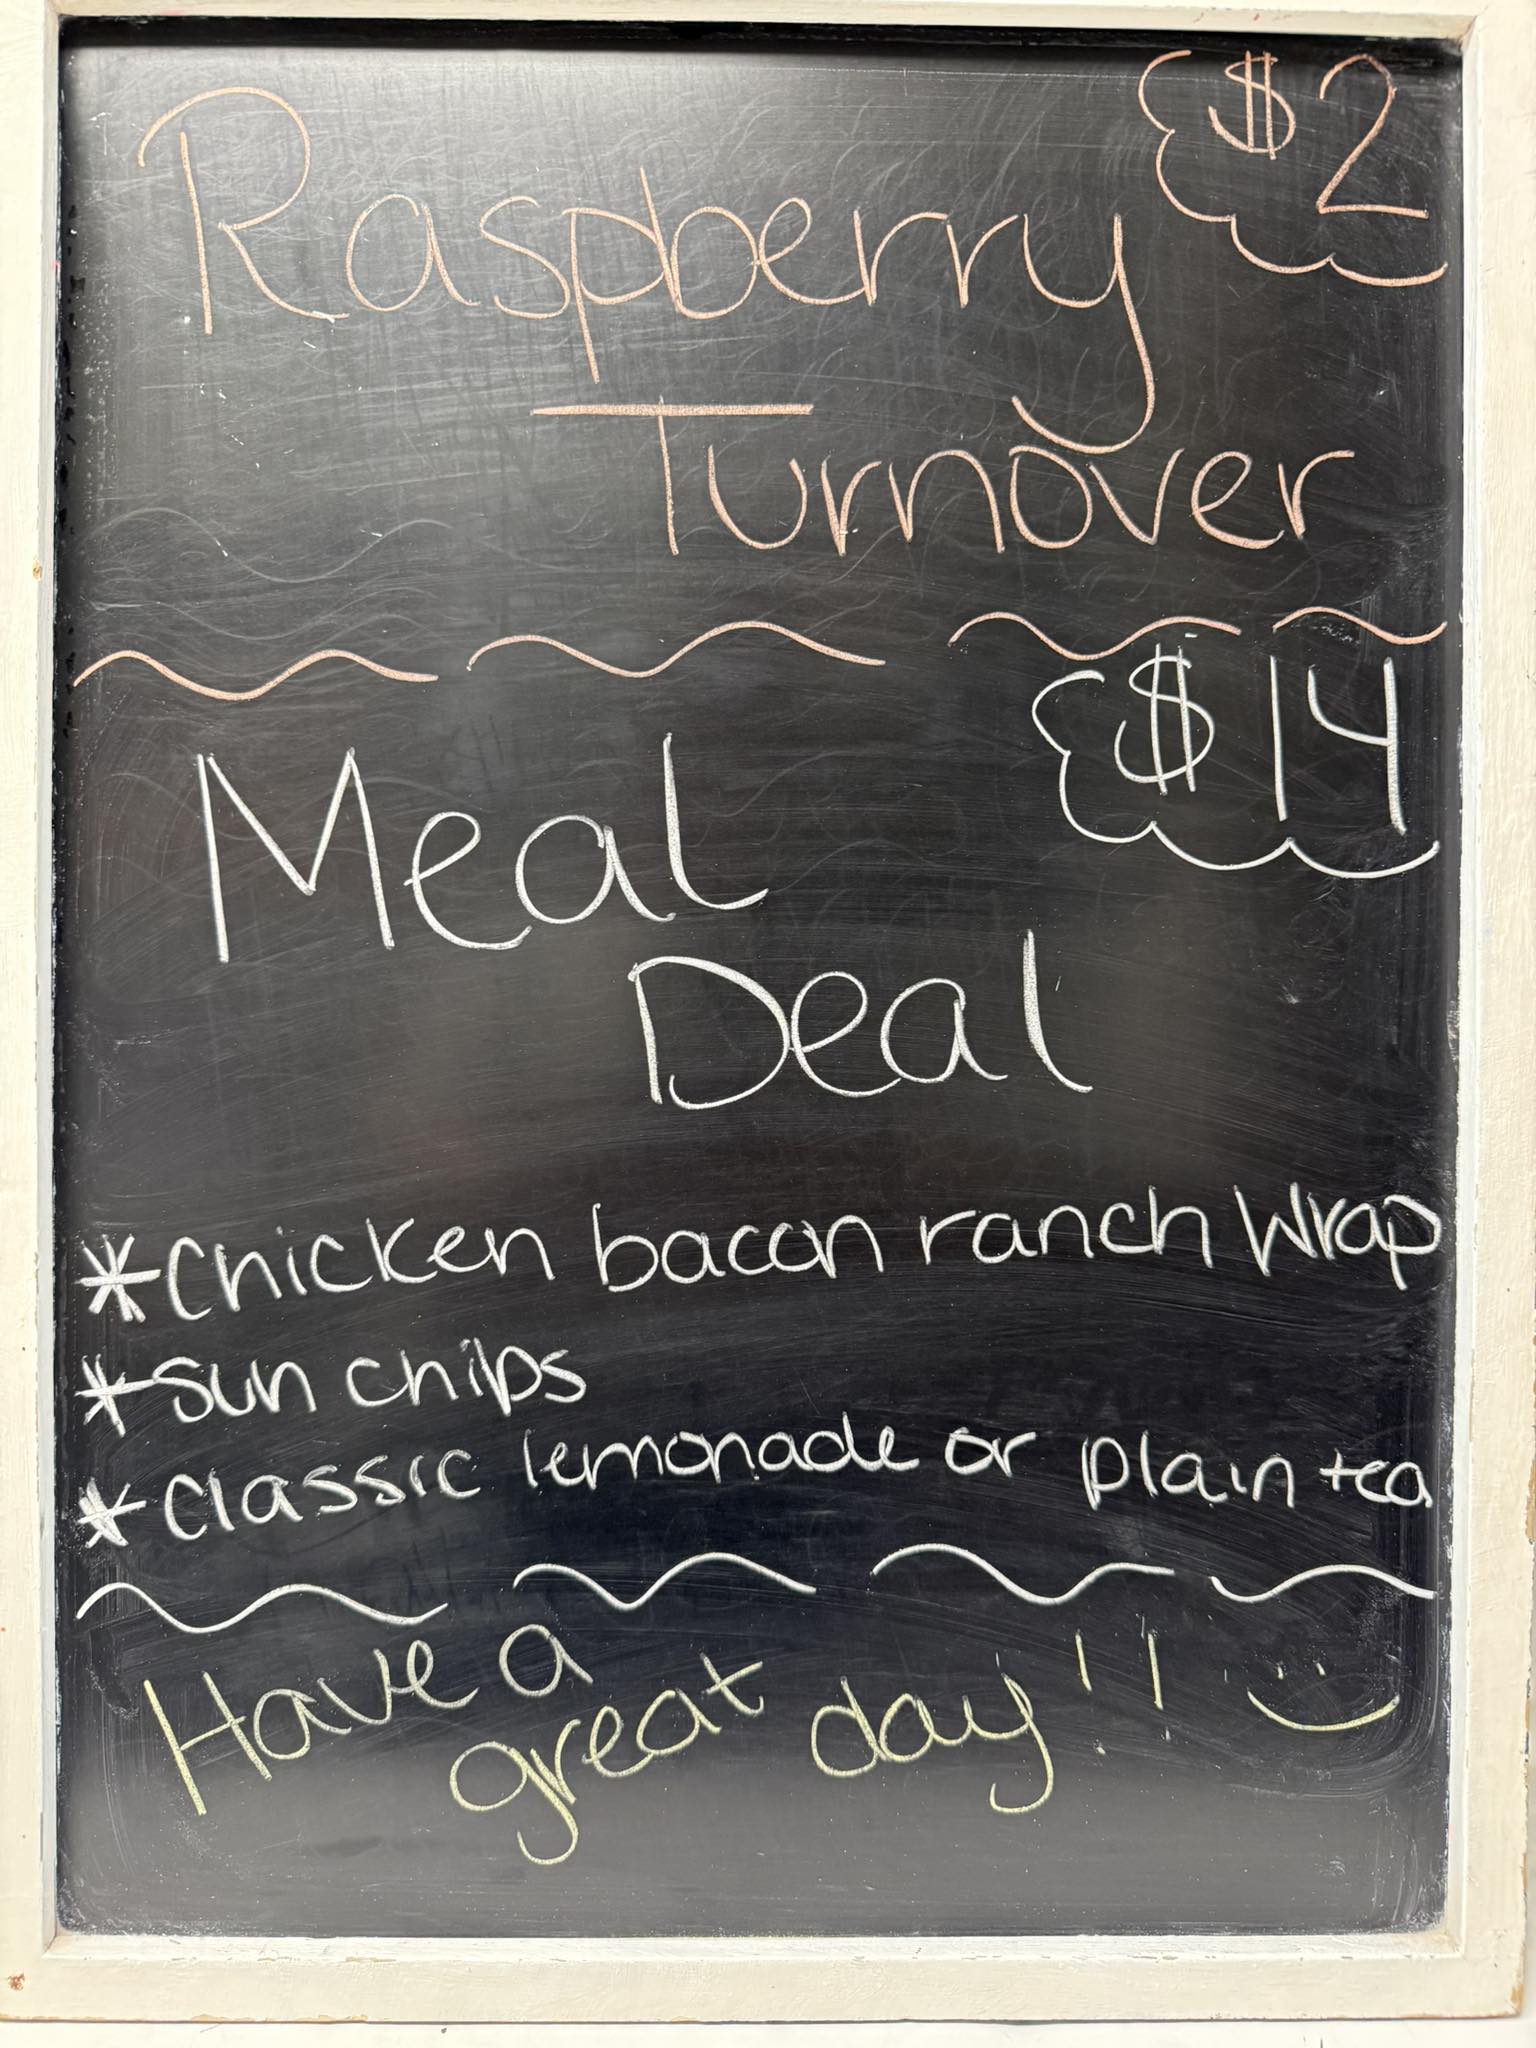 $2
Raspberry
Turnover
$14
Meal
Deal
*Chicken bacon ranch Wrap
*Sun chips
*Classic lemonade or plain tea
Have a
great day!! :)